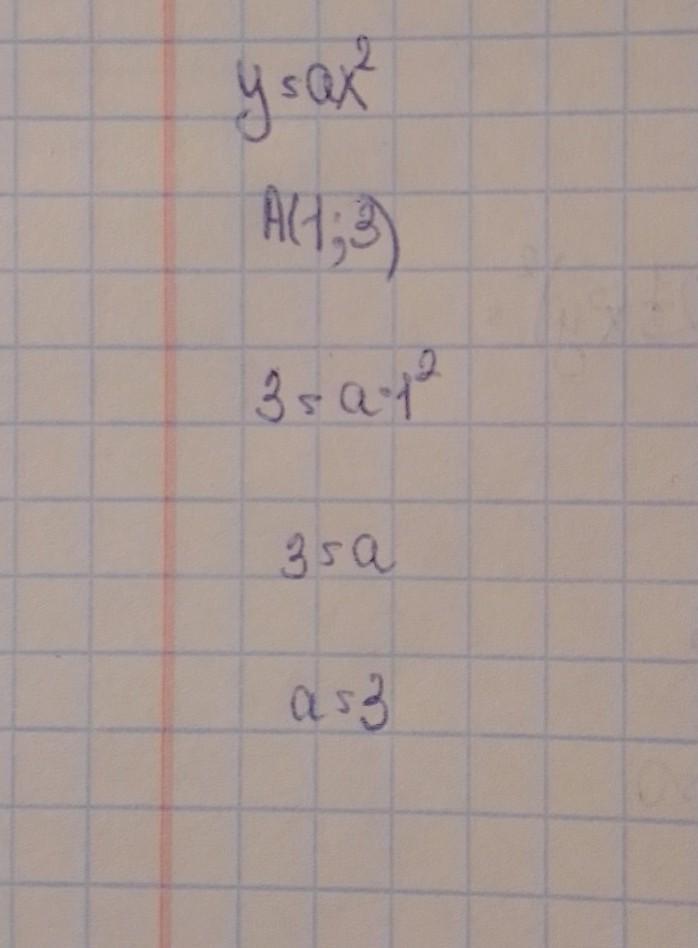 y=ax²
A(1;3)
3=a·1²
3=a
a=3